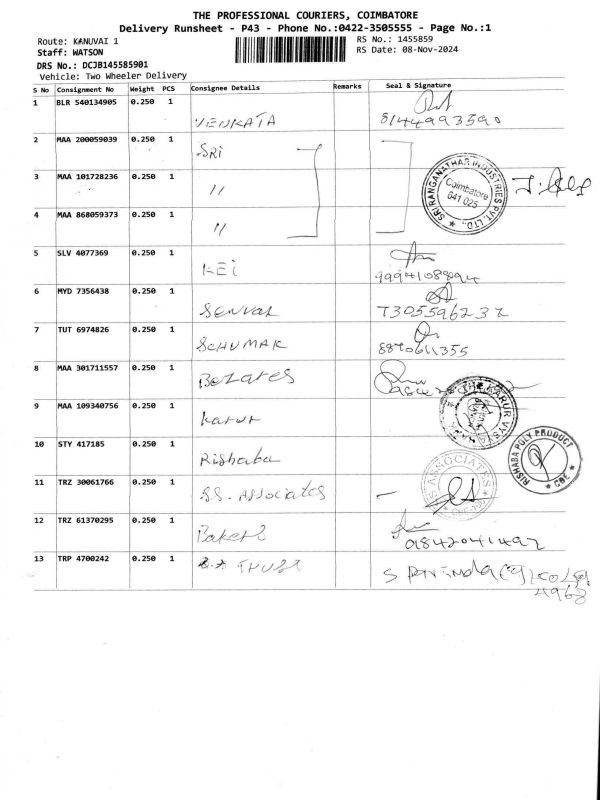 THE PROFESSIONAL COURIERS, COIMBATORE
Delivery Runsheet - P43 - Phone No.:0422-3505555 - Page No.:1
Route: KANUVAI 1
RS No.: 1455859
Staff: WATSON
RS Date: 08-Nov-2024
DRS No.: DCJB145585901
Vehicle: Two Wheeler Delivery
S No Consignment No Weight PCS Consignee Details Remarks Seal & Signature
1 BLR 540134905 0.250 1 VENKATA 8144993590
2 MAA 200059039 0.250 1 SRI
SRI RANGANATHAR INDUSTRIES PVT. LTD. Coimbatore 641 025
3 MAA 101728236 0.250 1 "
4 MAA 868059373 0.250 1 "
5 SLV 4077369 0.250 1 KEI
6 MYD 7356438 0.250 1 Senval 7305596232
7 TUT 6974826 0.250 1 SCHUMAK 8870611355
8 MAA 301711557 0.250 1 Bezares
9 MAA 109340756 0.250 1 Karur THE KARUR VYSYA BANK
10 STY 417185 0.250 1 Rishaba RISHABA POLY PRODUCT CBE
11 TRZ 30061766 0.250 1 S.S. Associates - S ASSOCIATES
12 TRZ 61370295 0.250 1 9842041492
13 TRP 4700242 0.250 1 TRUST
4968